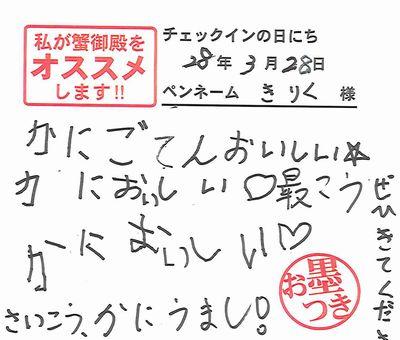 私が蟹御殿を
オススメ
します!!
チェックインの日にち
28年3月28日
ペンネーム きりく 様
かにごてんおいしい☆
かにおいしい♡最こう
かにおいしい♡
さいこう、かにうまし!
ぜひきてくださ
お墨
つき